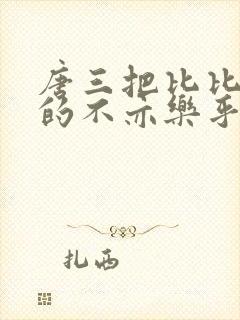 唐三把比比
的不亦樂乎
扎西